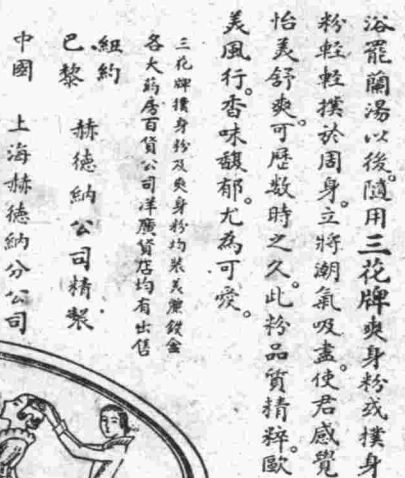 浴罷蘭湯以後。隨用三花牌爽身粉或撲身
粉輕輕撲於周身。立將潮氣吸盡。使君感覺
怡美舒爽。可歷數時之久。此粉品質精粹。歐
美風行。香味馥郁。尤為可愛。
三花牌撲身粉及爽身粉均裝美麗鐵盒
各大葯房百貨公司洋廣貨店均有出售
紐約
巴黎
赫德納公司精製
中國 上海赫德納分公司